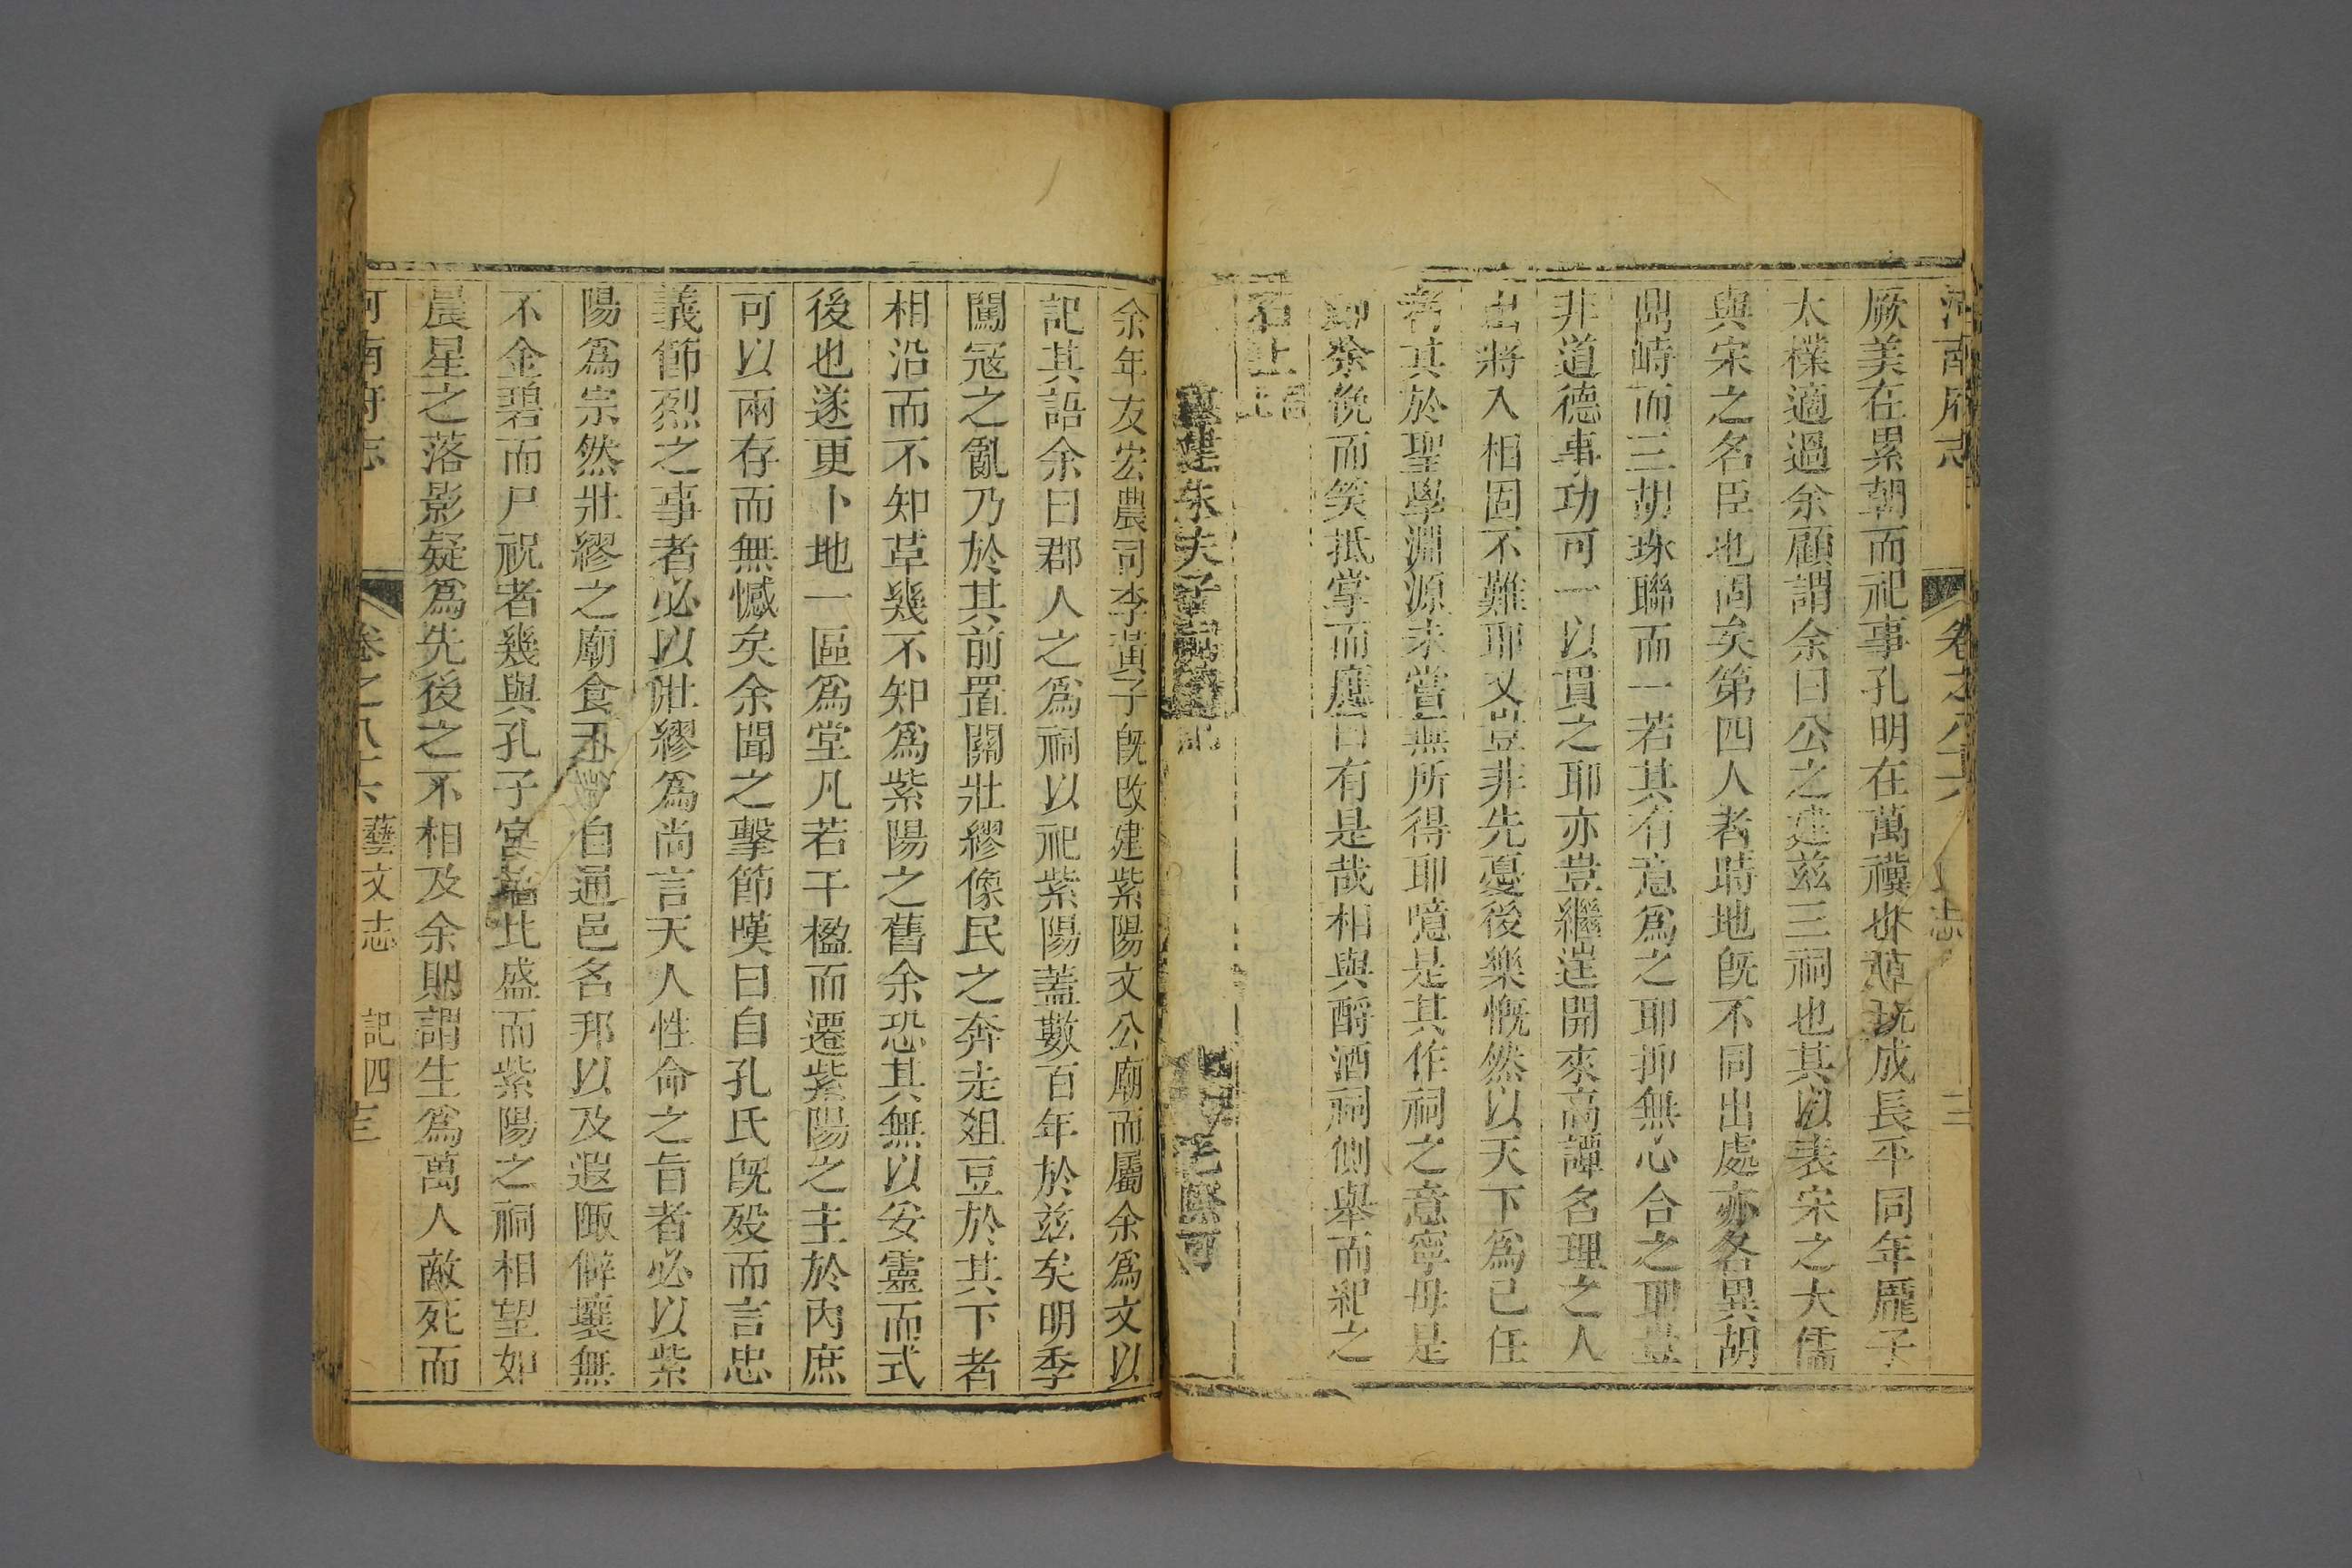 河南府志 卷之八十六 志 三
厥美在累朝而祀事孔明在萬禩也斬玩成長平同年龎子
太樸適過余顧謂余曰公之建兹三祠也其以表宋之大儒
與宋之名臣也固矣第四人者時地旣不同出處亦各異胡
鼎峙而三胡珠聯而一若其有意爲之耶抑無心合之耶豈
非道德事功可一以貫之耶亦豈繼徃開來高譚名理之人
出將入相固不難耶又豈非先憂後樂慨然以天下爲己任
者其於聖學淵源未嘗無所得耶噫是其作祠之意寧毋是
卽余俛而笑抵掌而應曰有是哉相與酹酒祠側舉而紀之
石上
建朱夫子祠記 毛際可
余年友宏農司李黃子旣改建紫陽文公廟而屬余爲文以
記其語余曰郡人之爲祠以祀紫陽蓋數百年於兹矣明季
闖冦之亂乃於其前置關壯繆像民之奔走爼豆於其下者
相沿而不知草幾不知爲紫陽之舊余恐其無以妥靈而式
後也遂更卜地一區爲堂凡若干楹而遷紫陽之主於內庶
可以兩存而無憾矣余聞之擊節嘆曰自孔氏旣歿而言忠
義節烈之事者必以壯繆爲尚言天人性命之旨者必以紫
陽爲宗然壯繆之廟食自通邑名邦以及遐陬僻壤無
不金碧而尸祝者幾與孔子宮墻比盛而紫陽之祠相望如
晨星之落影疑爲先後之不相及余則謂生爲萬人敵死而
河南府志 卷之八十六 藝文志 記四 三